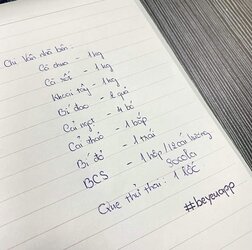 Chị Vân nhà bên:
Cà chua - 1 kg
Cà rốt - 1 kg
Khoai tây - 1 kg
Bí đao - 2 quả
Cải ngọt - 4 bó
Cải thảo - 1 bắp
Bí đỏ - 1 trái
BCS - 1 hộp / 12 cái hương
Socola
Que thử thai: 1 lốc
#beyeuapp